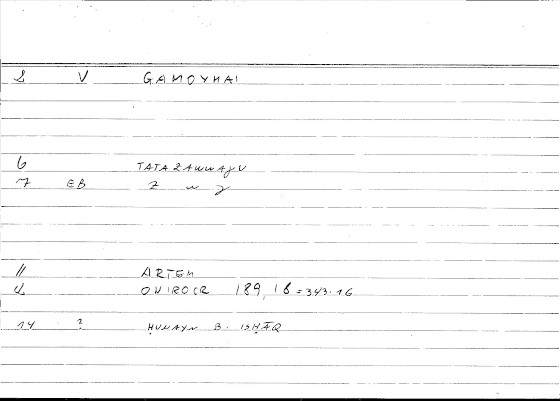 2 V GAMOYMAI
6 TATAZAWWAJU
7 EB Z W J
11 ARTEM
12 ONIROCR 189, 18 = 343.16
14 ? ḤUNAYN B. ISḤĀQ